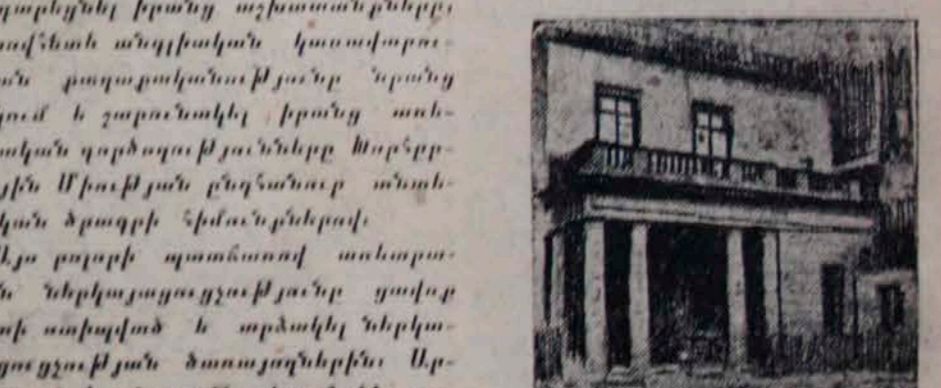 դարեցնել իրանց աշխատանքները,
ավետև անգլիական կառավարու-
ան քաղաքականությունը նրանց
կում է շարունակել իրանց առև-
ական գործողությունները Խորհըր-
յին Միության ընդհանուր տնտե-
կան ծրագրի հիմունքներով։
Այս բոլորի պատճառով առևտրա-
ն ներկայացուցչությունը ցավոք
տի ստիպված է արձակել ներկա-
ցուցչության ծառայողներին։ Ար-